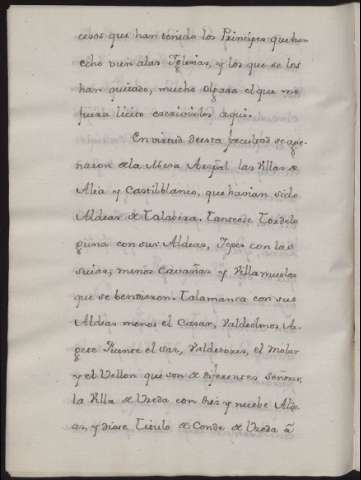 cesos que han tenido los Principes que han
echo vien alas Iglesias, y los que se los
han quitado, mucho olgara el que me
fuera licito escrivirlos aqui.
En virtud de esta facultad se age-
naron de la Mesa Arzpal las Villas de
Alia y Castilblanco, que havian sido
Aldeas de Talabera. Canseco Tordelo
guna con sus Aldeas, Iepes con las
suias, menos Cavañas y Villamuelas
que se bendieron. Talamanca con sus
Aldeas menos el Casar, Valdeolmos, A-
gete Fuente el Saz, Valdetorres, el Molar
y el Vellon que son de diferentes Señores,
la Villa de Uzeda con diez y nuebe Alde
as, y diose Titulo de Conde de Uzeda a